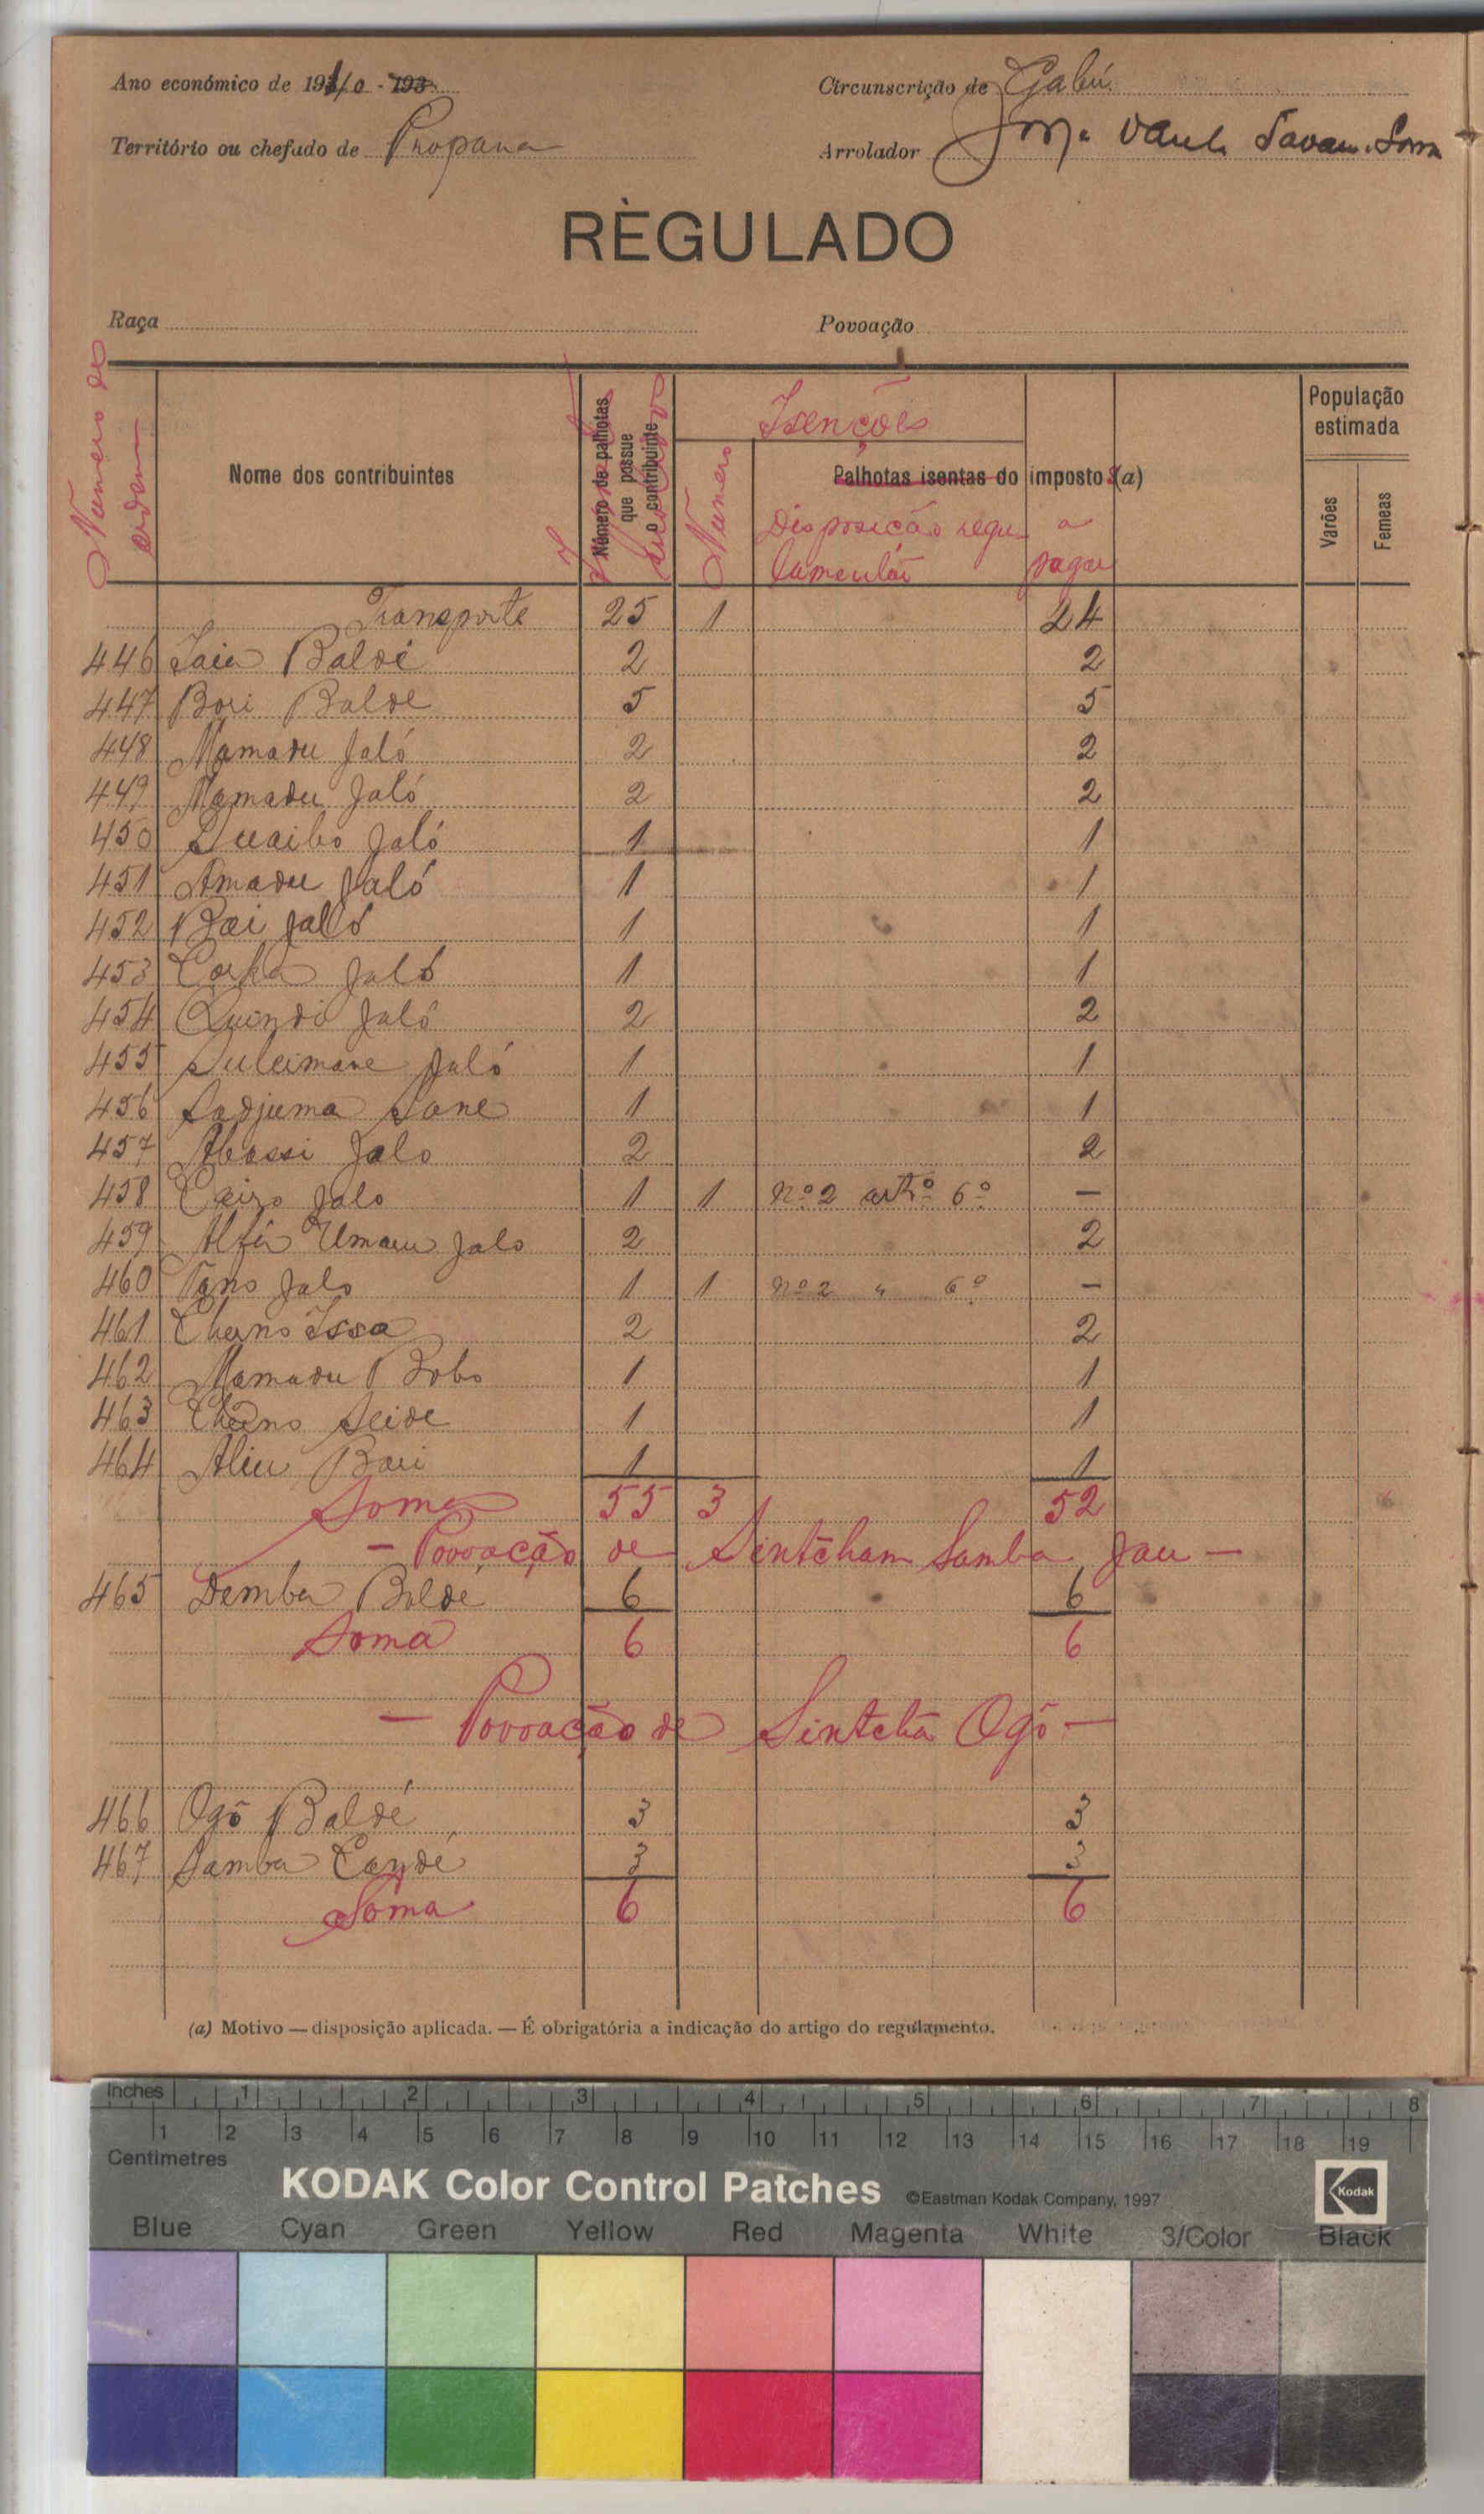 Ano económico de 194/0 - 193
Circunscrição de Gabú.
Território ou chefado de Propana
Arrolador
RÈGULADO
Raça
Povoação
Numero de ordem
Nome dos contribuintes
Número de palhotas que possue o contribuinte
Isenções
Numero
Palhotas isentas do imposto (a)
Disposição regu-
lamentar
a pagar
População estimada
Varões
Femeas
Transporte 25 1 24
446 Baldé 2 2
447 Bori Balde 5 5
448 Mamadu Jaló 2 2
449 Mamadu Jaló 2 2
450 Suaibo Jaló 1 1
451 Amadu Jaló 1 1
452 Bai Jaló 1 1
453 Jaló 1 1
454 Quindi Jaló 2 2
455 Suleimane Jaló 1 1
456 Sadjuma Sane 1 1
457 Abassi Jalo 2 2
458 Cairo Jalo 1 1 nº 2 artº 6º —
459 Alfa Umaru Jalo 2 2
460 Tano Jalo 1 1 nº 2 " 6º —
461 Cherno Issa 2 2
462 Mamadu Bobo 1 1
463 Cherno Seide 1 1
464 Aliu Bari 1 1
Soma 55 3 52
— Povoação de Sintcham Samba Jau —
465 Demba Baldé 6 6
Soma 6 6
— Povoação de Sintchã Ogõ —
466 Ogõ Baldé 3 3
467 Samba Candé 3 3
Soma 6 6
(a) Motivo — disposição aplicada. — É obrigatória a indicação do artigo do regulamento.
Inches 1 2 3 4 5 6 7 8
1 2 3 4 5 6 7 8 9 10 11 12 13 14 15 16 17 18 19
Centimetres
KODAK Color Control Patches ©Eastman Kodak Company, 1997 Kodak
Blue Cyan Green Yellow Red Magenta White 3/Color Black